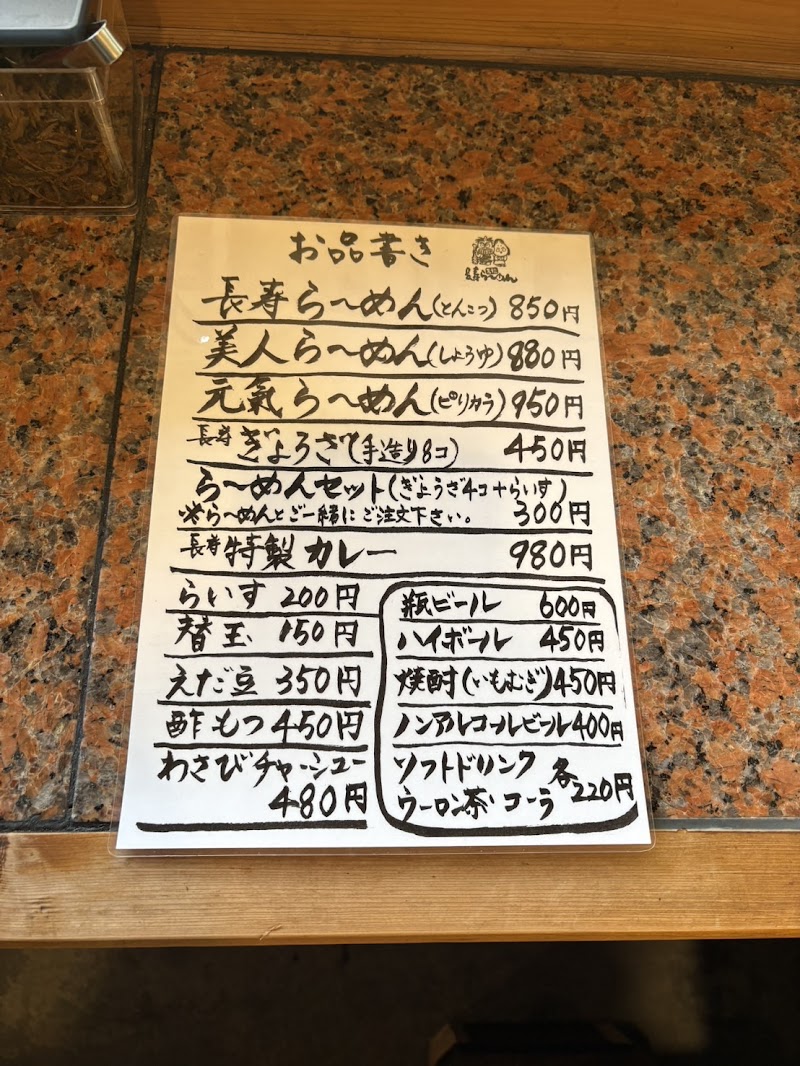 お品書き
長寿らーめん
長寿らーめん(とんこつ) 850円
美人らーめん(しょうゆ) 880円
元氣らーめん(ピリカラ) 950円
長寿ぎょうざ(手造り8コ) 450円
らーめんセット(ぎょうざ4コ+らいす)
※らーめんとご一緒にご注文下さい。 300円
長寿特製カレー 980円
らいす 200円
替玉 150円
えだ豆 350円
酢もつ 450円
わさびチャーシュー
480円
瓶ビール 600円
ハイボール 450円
焼酎(いもむぎ) 450円
ノンアルコールビール 400円
ソフトドリンク 各220円
ウーロン茶・コーラ